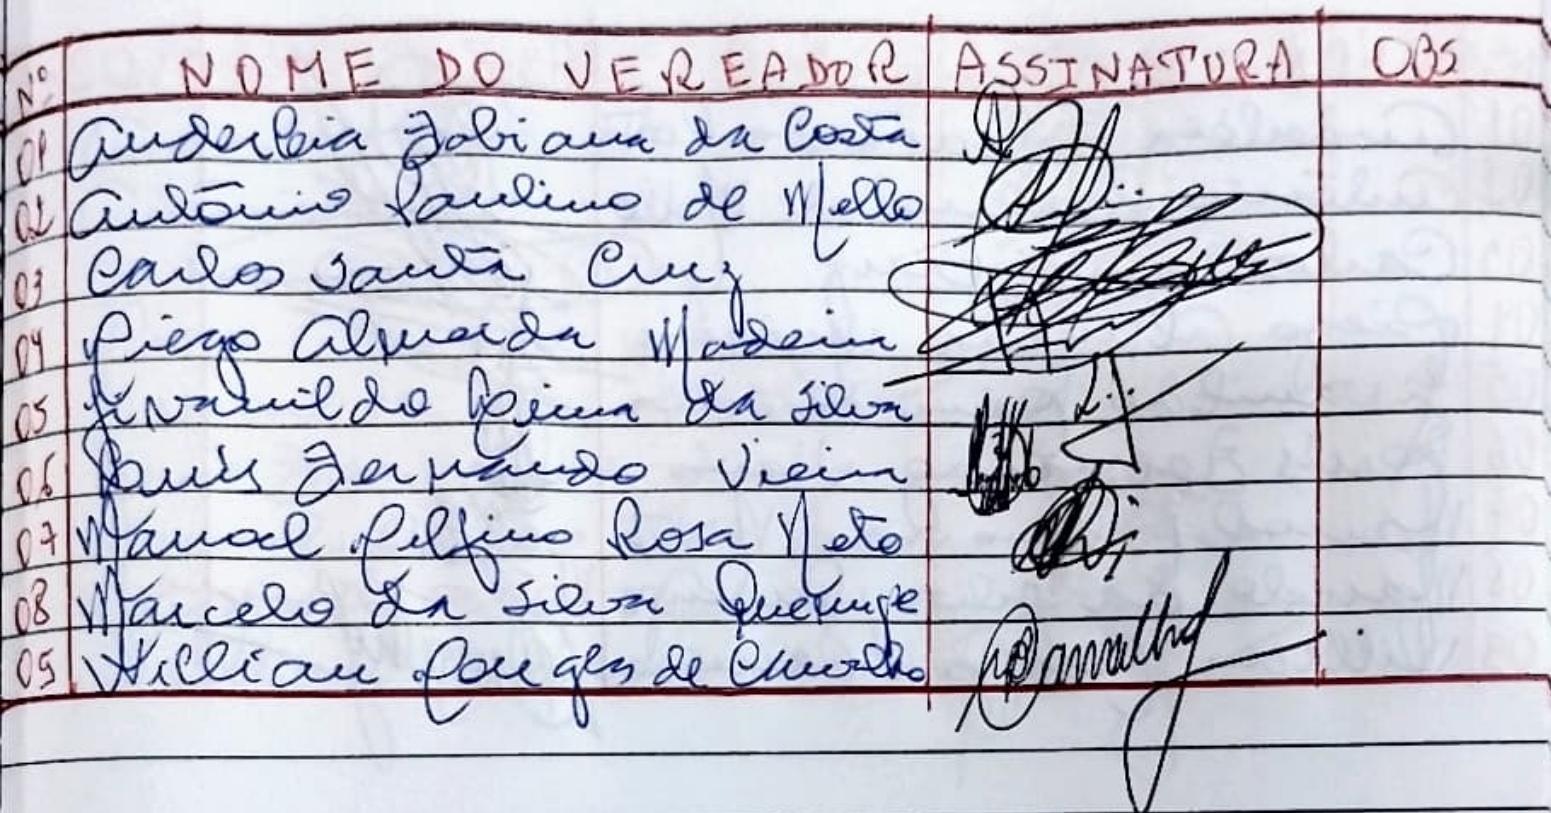 Nº NOME DO VEREADOR ASSINATURA OBS
01 Fabiana da Costa
02 Antônio Paulino de Mello
03 Carlos Santa Cruz
04 Diego Almeida Madeira
05 da Silva
06 Luís Fernando Vieira
07 Manoel Delfino Rosa Neto
08 Marcelo da Silva
09 Willian Borges de Carvalho Carvalho